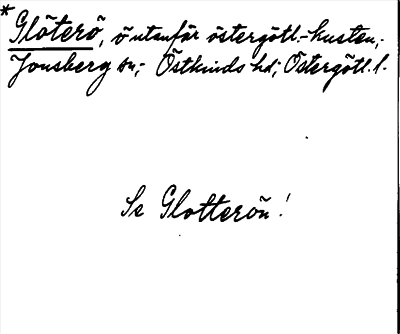 * Glöterö, ö utanför östergötl.-kusten,-
Jonsberg sn,- Östkinds hd; Östergötl. l.
Se Glotterön!